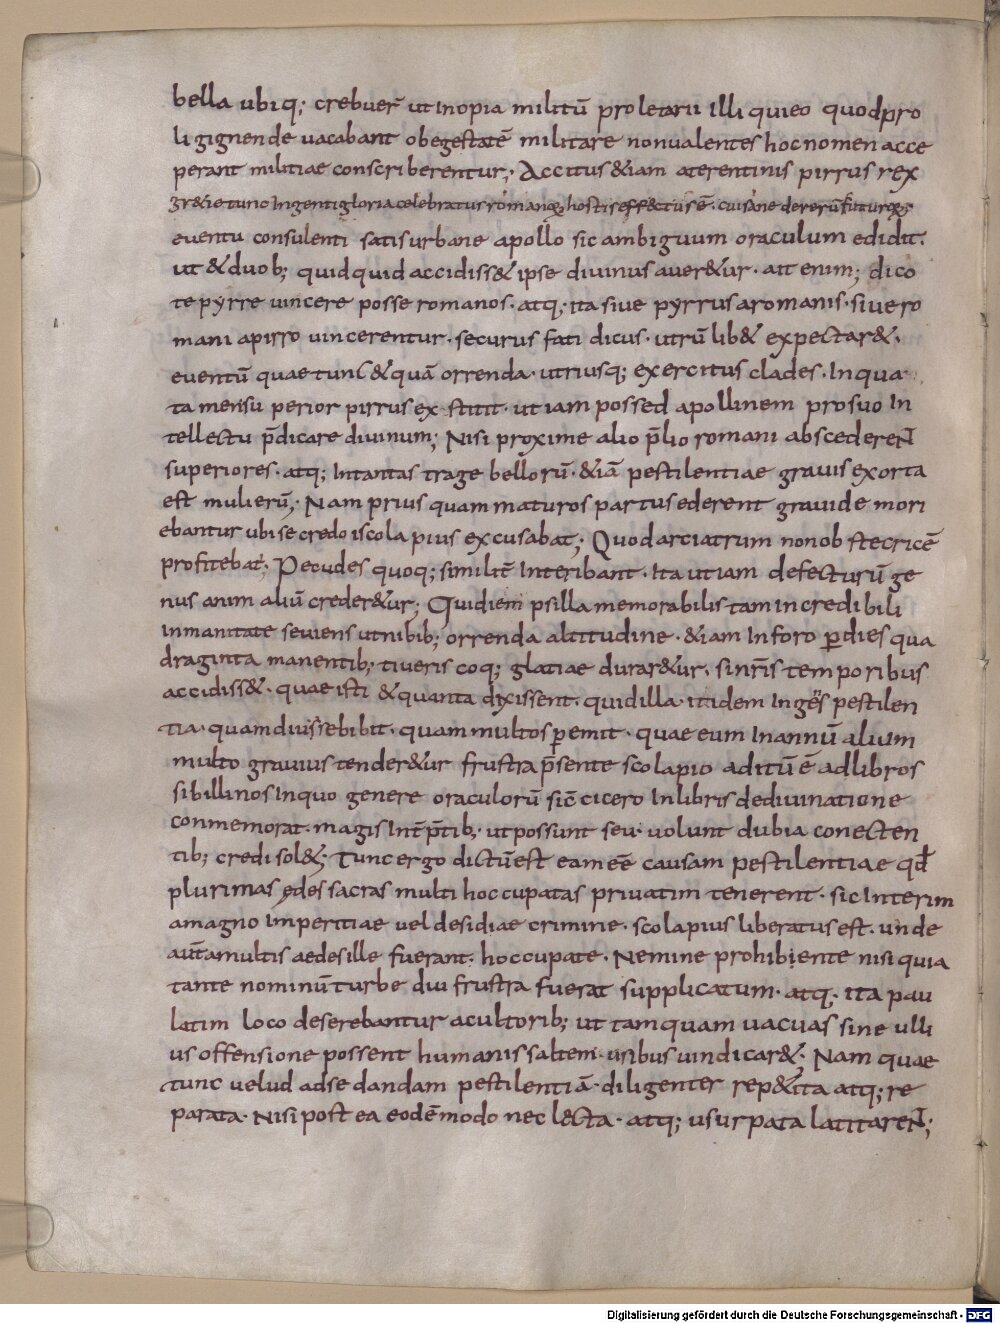 bella ubiq; crebuer̄ ut inopia militū proletarii illi qui eo quod pro
li gignende vacabant ob egestatē militare non valentes hoc nomen acce
perant militiae conscriberentur; Accitus &iam a terentinis pirrus rex
gr&ie tunc ingenti gloria celebratus romanoꝝ hostis eff&ctus ē. cui sane de rerū futuroꝝ
eventu consulenti satis urbane apollo sic ambiguum oraculum edidit.
ut & duob; quidquid accidiss& ipse divinus aver&ur. ait enim; dico
te pyrre vincere posse romanos. atq; ita sive pyrrus a romanis. sive ro
mani a pirro vincerentur. securus fati dicus. utrū lib& expectar&.
eventū quae tunc & quā orrenda. utriusq; exercitus clades. In qua
ta men su perior pirrus ex stitit. ut iam possed apollinem pro suo in
tellectu p̄dicare divinum; Nisi proxime alio p̄lio romani abscederent
superiores. atq; in tantas trage bellorū. &iā pestilentiae gravis exorta
est mulierū; Nam prius quam maturos partus ederent gravide mori
ebantur ubi se credo iscolapius excusabat; Quod arciatrum non obstecricē
profitebat; Pecudes quoq; similit̄ interibant. Ita ut iam defecturū ge
nus anim aliū creder&ur; Quid iem psilla memorabilis tam incredibili
inmanitate seviens ut nibib; orrenda altitudine. &iam in foro p̄ dies qua
draginta manentib; tiveris coq; glatiae durar&ur. si nr̄is temporibus
accidiss&. quae isti & quanta dixissent. quid illa. itidem ingēs pestilen
tia. quamdiu s'sebibit. quam multos p̄emit. quae eum in annū alium
multo gravius tender&ur frustra p̄sente scolapio aditū ē ad libros
sibillinos in quo genere oraculorū sic̄ cicero in libris de divinatione
conmemorat. magis int̄p̄tib; ut possunt seu. volunt dubia conecten
tib; credi sol&; Tunc ergo dictū est eam eē causam pestilentiae qđ
plurimas ędes sacras multi hoccupatas privatim tenerent. sic interim
a magno imperitiae vel desidiae crimine. scolapius liberatus est. unde
aut̄ a multis aedes ille fuerant. hoccupate. Nemine prohibiente nisi quia
tante nominū turbe diu frustra fuerat supplicatum. atq; ita pau
latim loco deserebantur a cultorib; ut tamquam vacuas sine ulli
us offensione possent humanis saltem. usibus vindicar&; Nam quae
tunc velud ad sedandam pestilentiā. diligenter rep&ita atq; re
parata. Nisi post ea eodē modo nec l&cta. atq; usurpata latitarent;
Digitalisierung gefördert durch die Deutsche Forschungsgemeinschaft - DFG